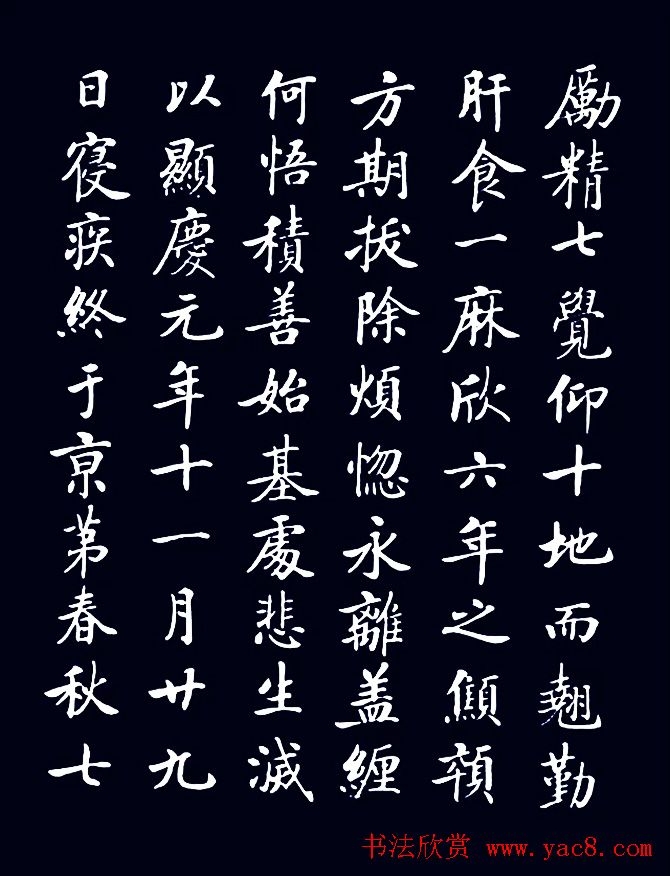 勵精七覺仰十地而翹勤
肝食一麻欣六年之顦顇
方期拔除煩惚永離盖纏
何悟積善始基處悲生滅
以顯慶元年十一月廿九
日寑疾終于京第春秋七
书法欣赏 www.yac8.com